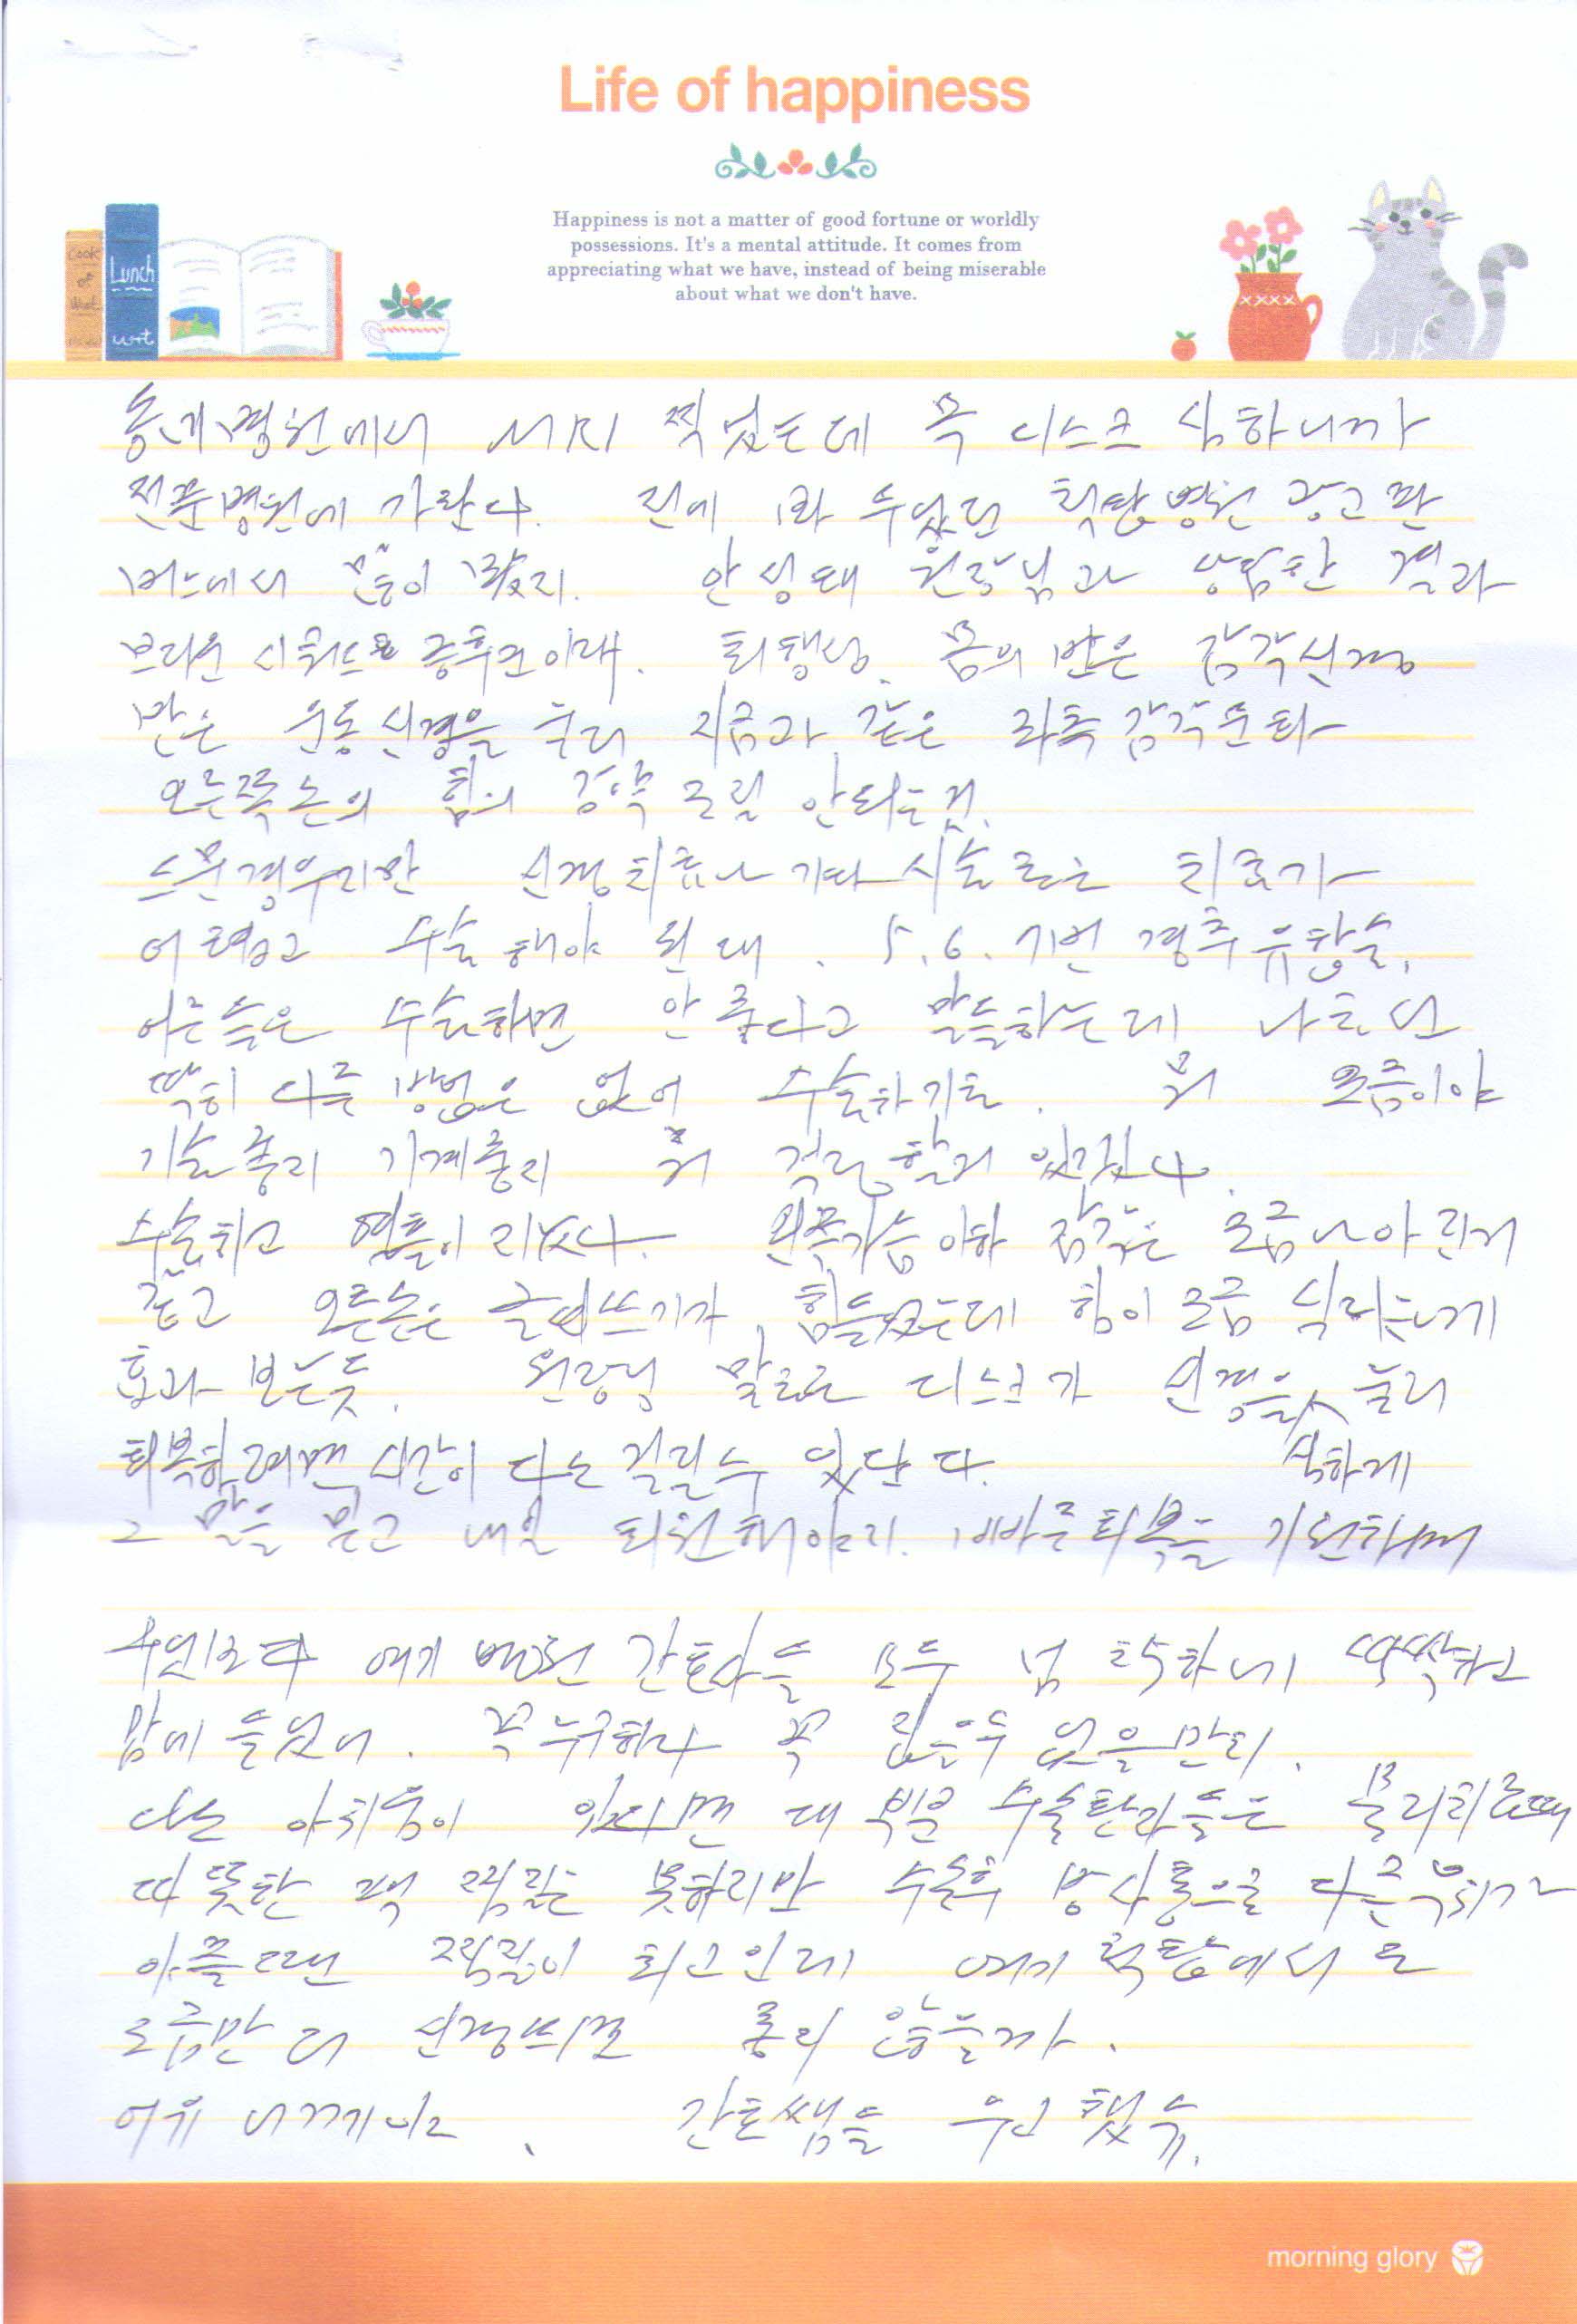 Life of happiness
Happiness is not a matter of good fortune or worldly
possessions. It's a mental attitude. It comes from
appreciating what we have, instead of being miserable
about what we don't have.
Cook
of
Lunch
동네병원에서 MRI 찍었는데 목 디스크 심하니까
전문병원에 가란다. 전에 봐 두었던 척탑병원 광고판
버스에서 많이 봤지. 안성태 원장님과 상담한 결과
브라운 시쿼드 증후군이래. 퇴행성. 몸의 반은 감각신경
반은 운동신경을 눌러 지금과 같은 좌측 감각둔화
오른쪽 손의 힘의 강약 조절 안되는것.
드문경우지만 신경치료나 기타 시술로는 치료가
어렵고 수술해야 된대. 5.6.7번 경추 유합술.
어른들은 수술하면 안 좋다고 말들하는데 나로선
딱히 다른 방법은 없어 수술하기로. 뭐 요즘이야
기술좋지 기계좋지 뭐 걱정할거 있겠나.
수술하고 열흘이 지났다. 왼쪽가슴 이하 감각은 조금 나아진거
같고 오른손은 글씨쓰기가 힘들었는데 힘이 조금 실리는게
효과 보는듯. 원장님 말로는 디스크가 신경을 눌러
회복하려면 시간이 다소 걸릴수 있단다. 심하게
그 말을 믿고 내일 퇴원해야지. 빠른회복을 기원하며
무엇보다 여기 병원 간호사들 모두 넘 착하네 싹싹하고
맘에 들었어. 꼭 누구하나 꼭 집을수 없을만치.
다소 아쉬움이 있다면 대부분 수술환자들은 물리치료때
따뜻한 팩 찜질은 못하지만 수술후 방사통으로 다른부위가
아플때면 찜질이 최고인데 여기 척탑에서도
조금만 더 신경쓰면 좋지 않을까.
간호쌤들 수고했슈.
morning glory